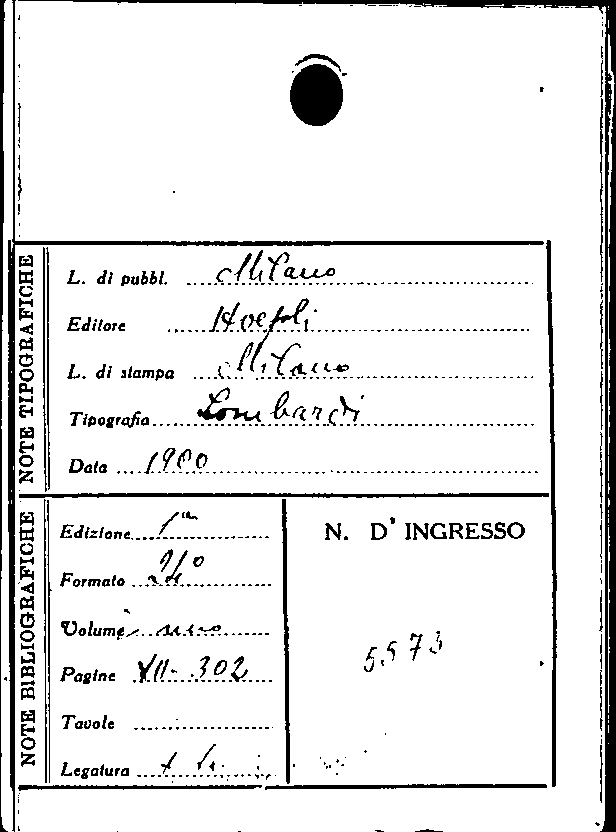 NOTE TIPOGRAFICHE
L. di pubbl. Milano
Editore Hoepli
L. di stampa Milano
Tipografia Lombardi
Data 1900
NOTE BIBLIOGRAFICHE
Edizione 1ª
Formato 24°
Volume uno
Pagine XII-302
Tavole
Legatura
N. D' INGRESSO
5573